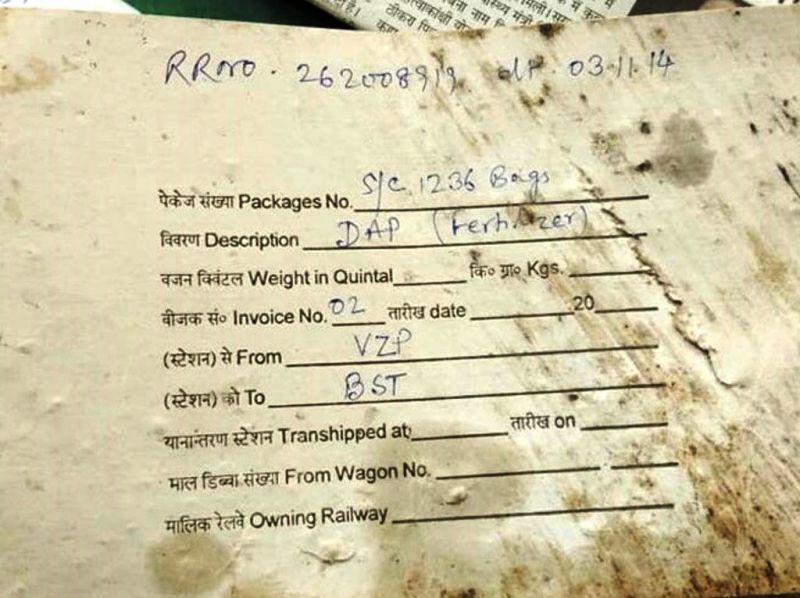 RRno. 262008919 dt. 03.11.14
पेकेज संख्या Packages No. S/C 1236 Bags
विवरण Description DAP (Fertilizer)
वजन क्विंटल Weight in Quintal कि० ग्रा० Kgs.
बीजक सं० Invoice No. 02 तारीख date 20
(स्टेशन) से From VZP
(स्टेशन) को To BST
यानान्तरण स्टेशन Transhipped at तारीख on
माल डिब्बा संख्या From Wagon No.
मालिक रेलवे Owning Railway